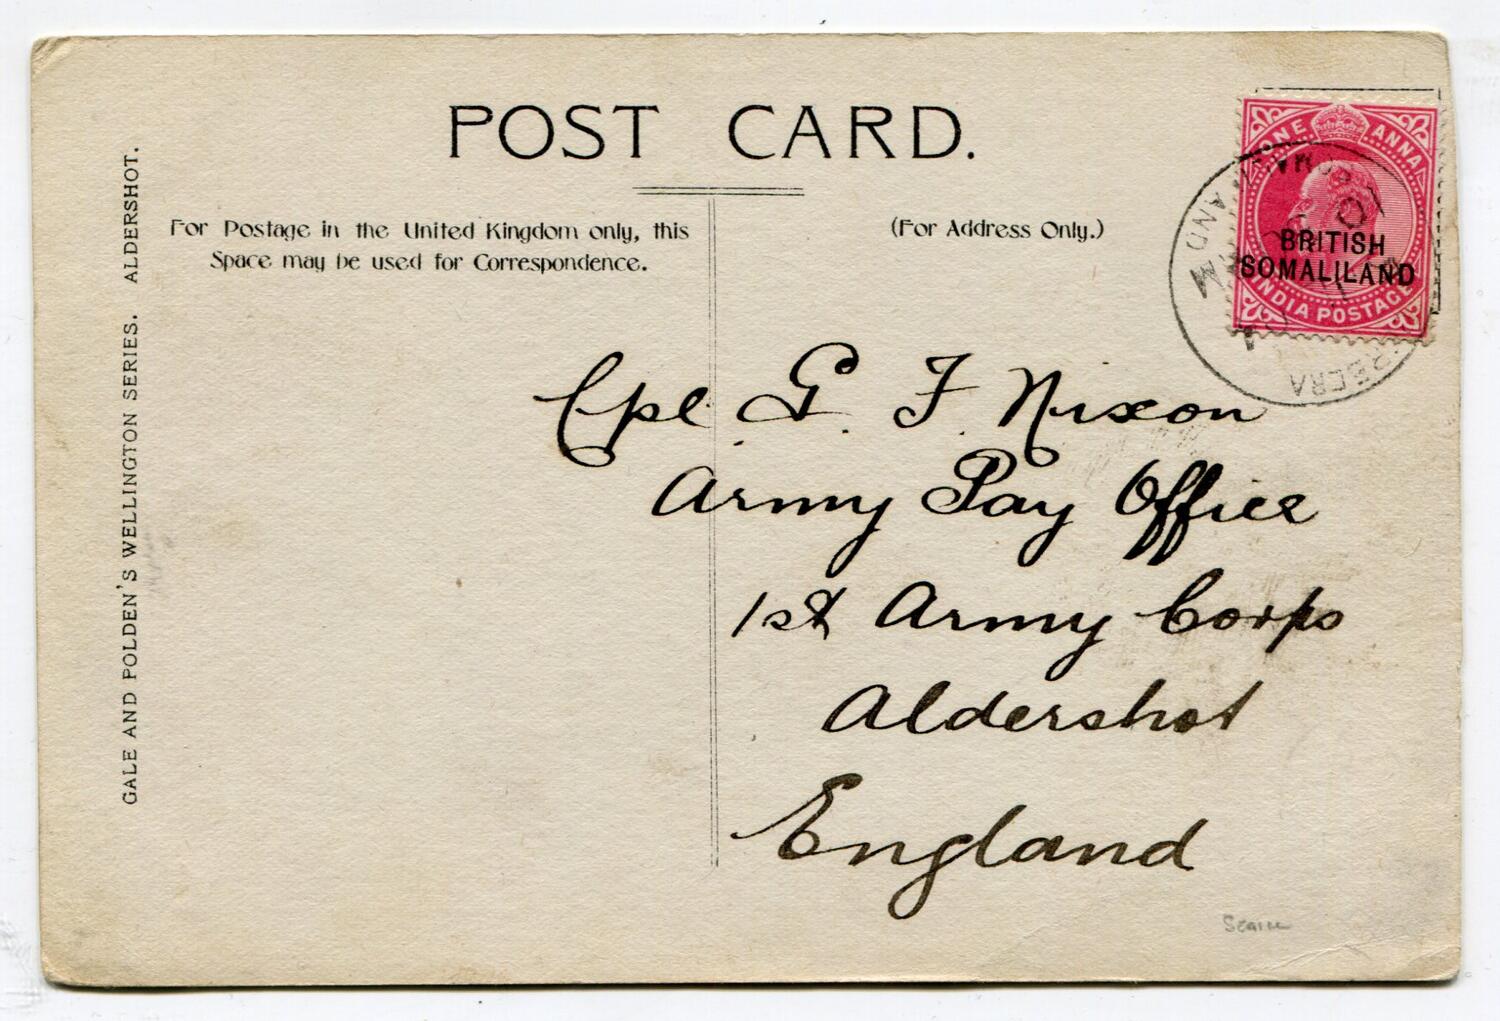 POST CARD.
For Postage in the United Kingdom only, this
Space may be used for Correspondence.
(For Address Only.)
GALE AND POLDEN'S WELLINGTON SERIES. ALDERSHOT.
ONE ANNA
BRITISH
SOMALILAND
INDIA POSTAGE
Cpl G. F. Nixon
Army Pay Office
1st Army Corps
Aldershot
England